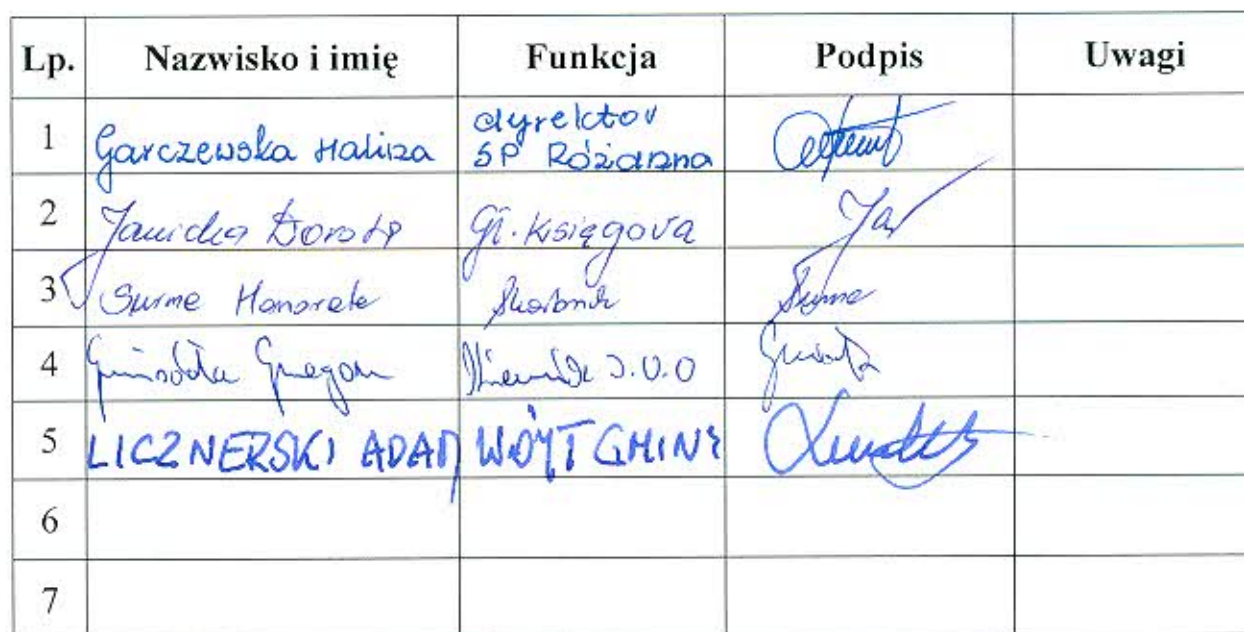 Lp. Nazwisko i imię Funkcja Podpis Uwagi
1 Garczewska Halina dyrektor
SP Różanna
2 Janicka Dorota Gł. księgowa
3 Surma Honorata Skarbnik
4 Kierownik
5 LICZNERSKI ADAM WÓJT GMINY
6
7